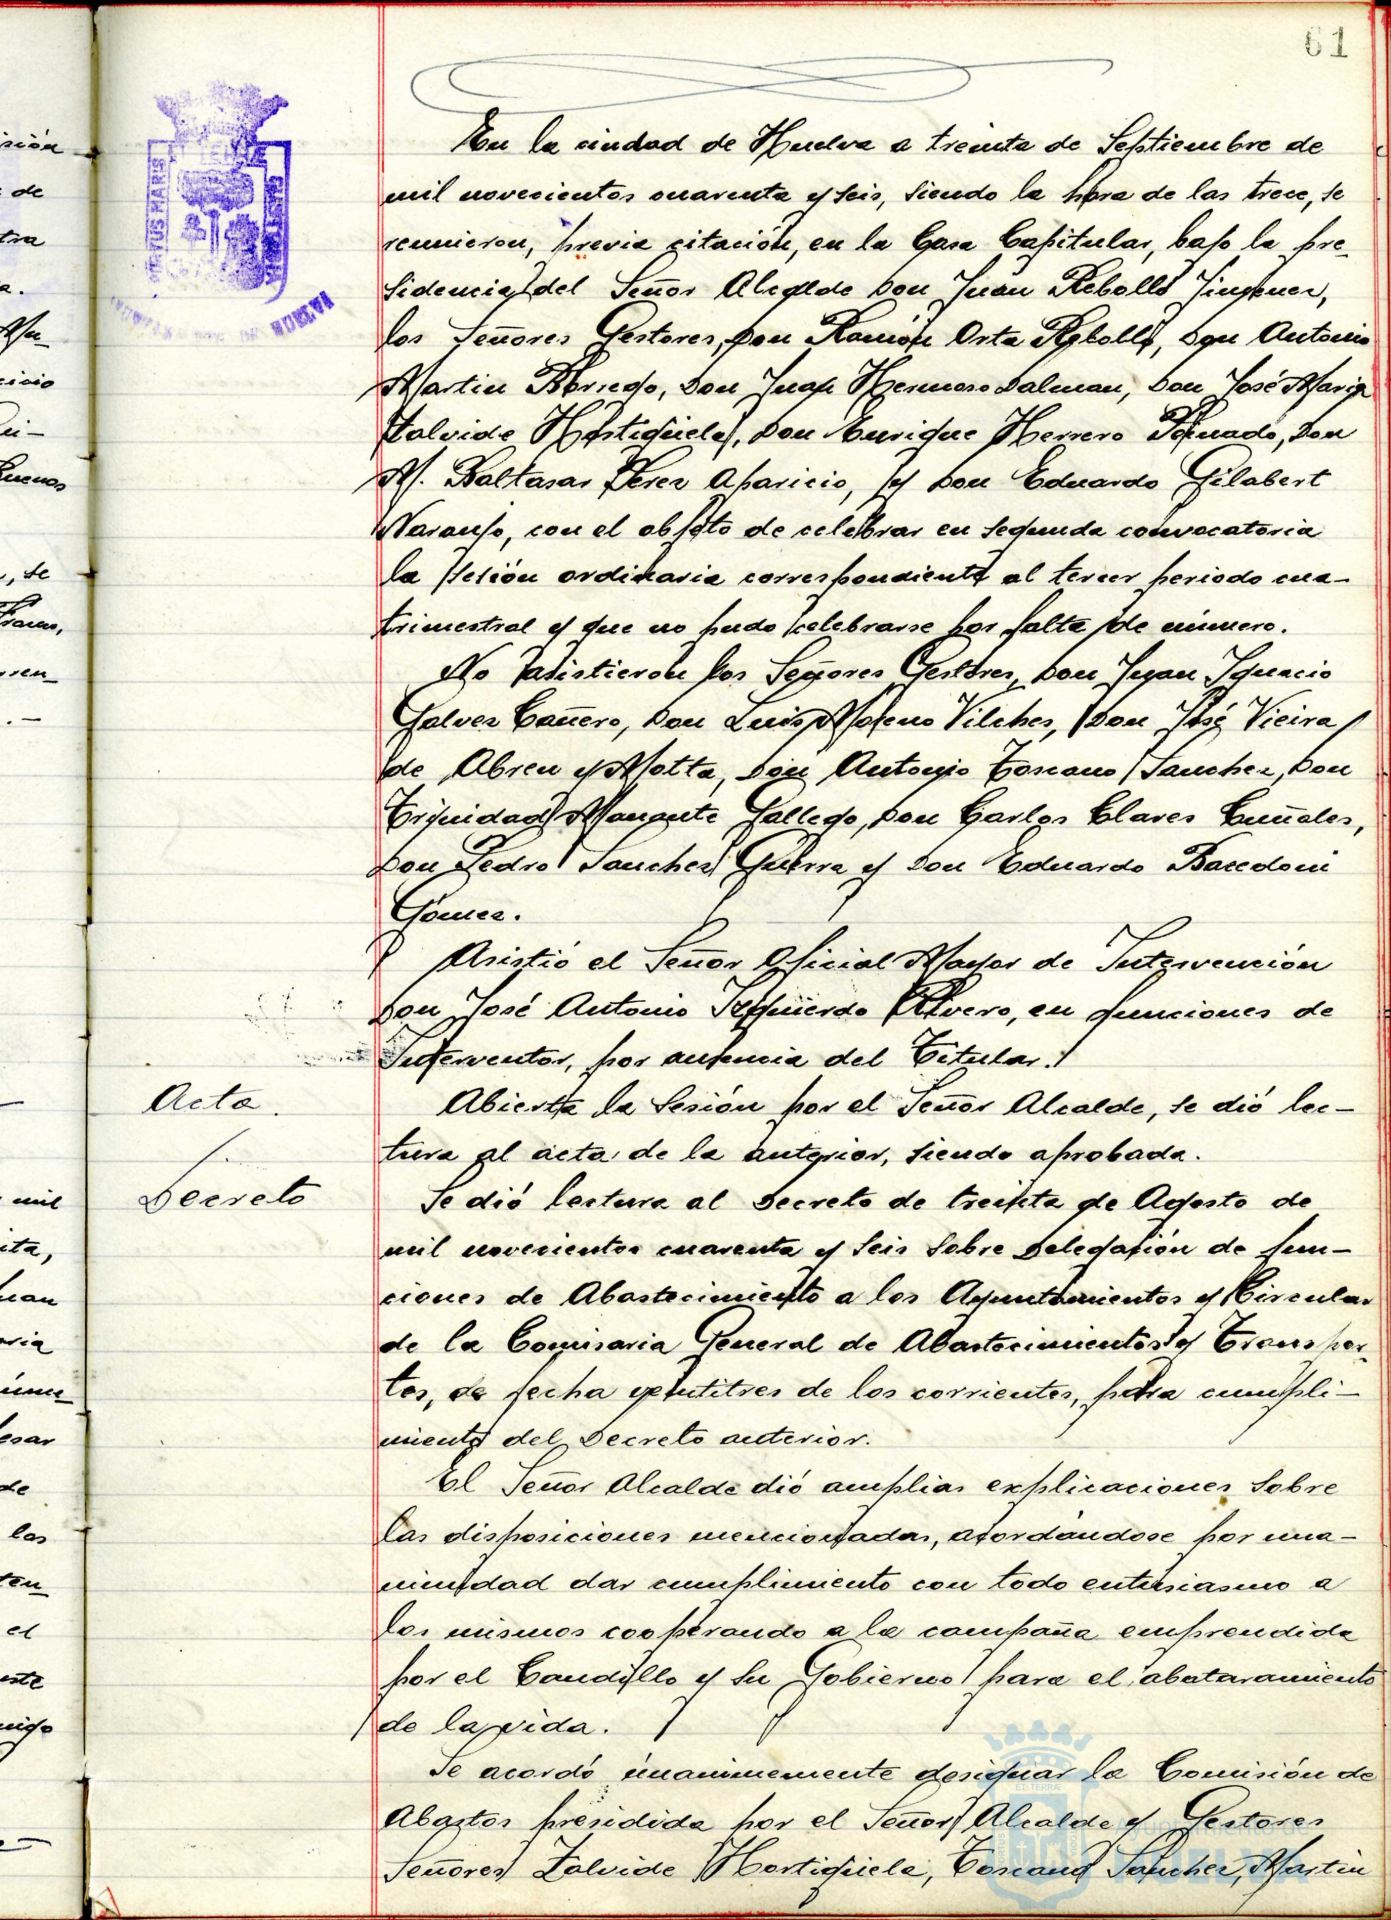 61
En la ciudad de Huelva a treinta de Septiembre de
mil novecientos cuarenta y seis, siendo la hora de las trece, se
reunieron, previa citación, en la Casa Capitular, bajo la pre-
sidencia del Señor Alcalde Don Juan Rebollo Jimenez,
los Señores Gestores, Don Ramón Orta Rebollo, Don Antonio
Martin Borrego, Don Juan Hermoso Dalman, Don José Maria
Zalvide Hortigüela, Don Enrique Herrero Peinado, Don
M. Baltasar Perez Aparicio, y Don Eduardo Gilabert
Naranjo, con el objeto de celebrar en segunda convocatoria
la sesión ordinaria correspondiente al tercer periodo cua-
trimestral y que no pudo celebrarse por falta de número.
No asistieron los Señores Gestores, Don Juan Ignacio
Galvez Cañero, Don Luis Moreno Vilches, Don José Vieira
de Abreu y Motta, Don Antonio Toscano Sanchez, Don
Trinidad Manante Gallego, Don Carlos Clares Cuñales,
Don Pedro Sanchez Guerra y Don Eduardo Bacedoni
Gómez.
Asistió el Señor Oficial Mayor de Intervención
Don José Antonio Izquierdo Rivero, en funciones de
Interventor, por ausencia del Titular.
Acta.
Abierta la Sesión por el Señor Alcalde, se dió lec-
tura al acta de la anterior, siendo aprobada.
Decreto
Se dió lectura al Decreto de treinta de Agosto de
mil novecientos cuarenta y seis sobre Delegación de fun-
ciones de Abastecimiento a los Ayuntamientos y Circular
de la Comisaria General de Abastecimientos y Transpor-
tes, de fecha veintitres de los corrientes, para cumpli-
miento del Decreto anterior.
El Señor Alcalde dió amplias explicaciones sobre
las disposiciones mencionadas, acordándose por una-
nimidad dar cumplimiento con todo entusiasmo a
los mismos cooperando a la campaña emprendida
por el Caudillo y Su Gobierno para el abataramiento
de la vida.
Se acordó únanimemente designar la Comisión de
Abastos presidida por el Señor Alcalde y Gestores
Señores Zalvide Hortigüela, Toscano Sanchez, Martin